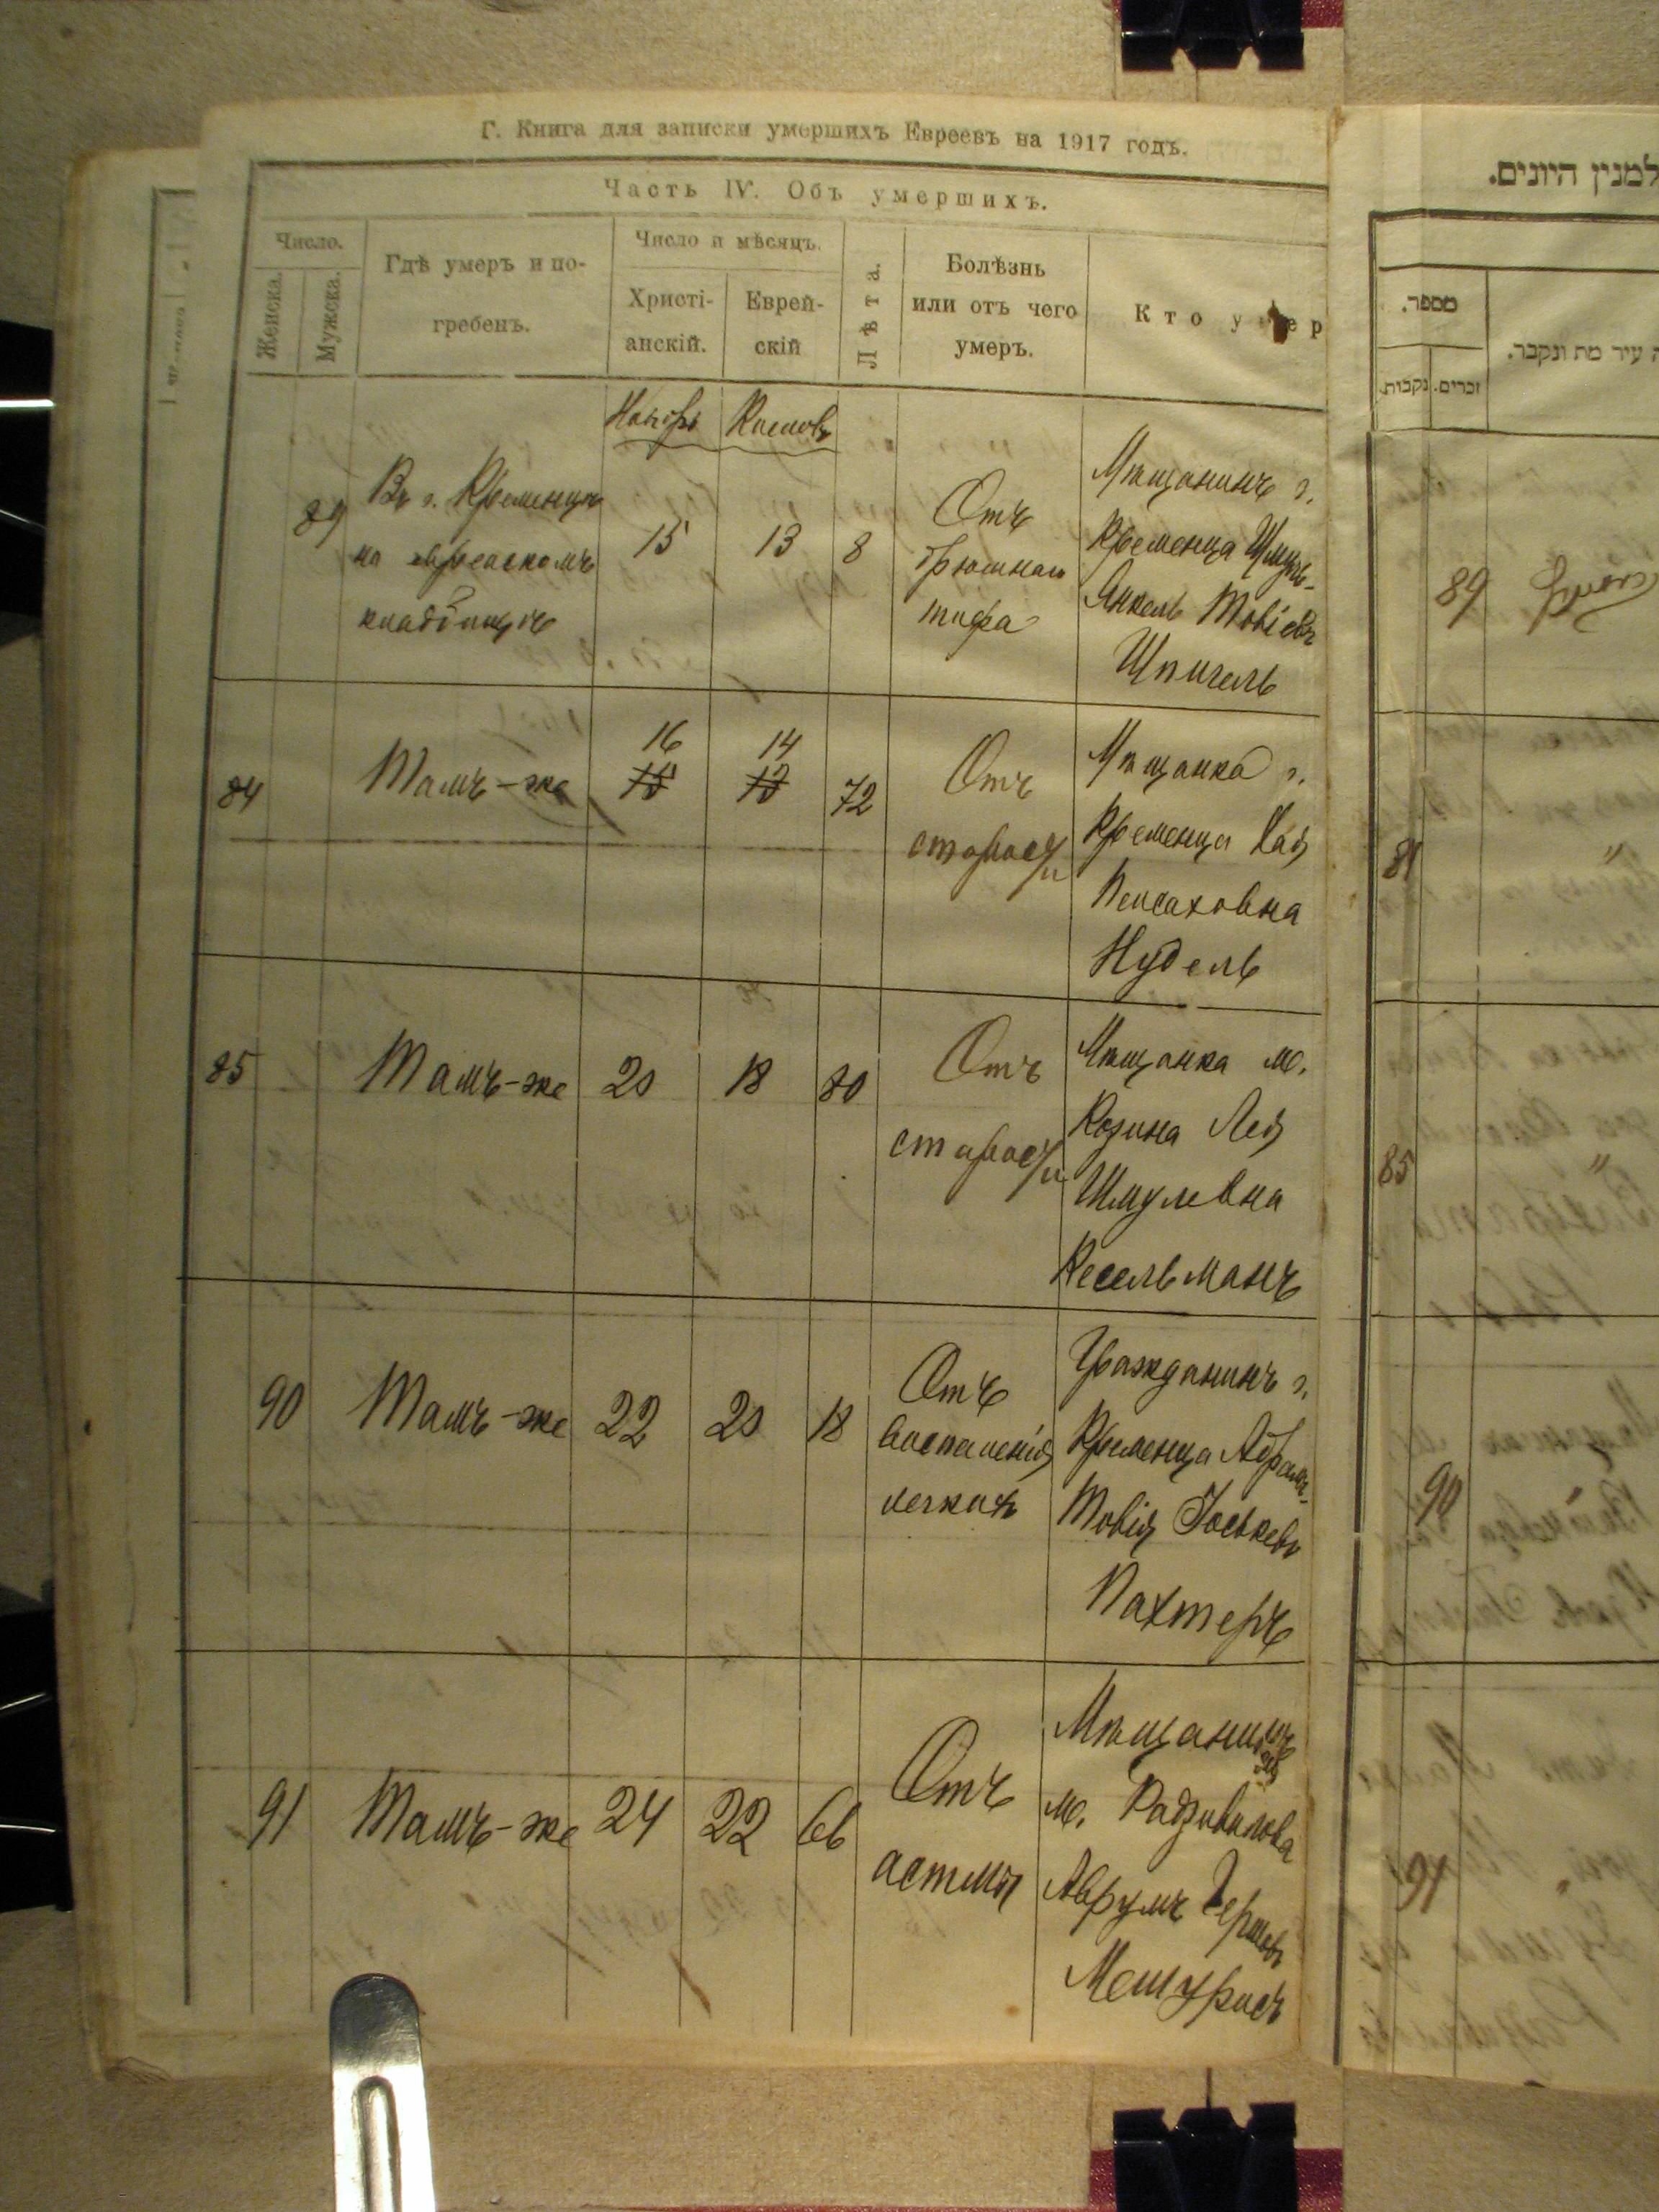 Г. Книга для записки умершихъ Евреевъ на 1917 годъ.
Часть IV. Объ умершихъ.
Число.
Женска.
Мужска.
Гдѣ умеръ и по-
гребенъ.
Число и мѣсяцъ.
Христі-
анскій.
Еврей-
скій
Лѣта.
Болѣзнь
или отъ чего
умеръ.
Кто умер
Ноябрь
Кислевъ
89
Въ г. Кременцѣ
на еврейскомъ
кладбищѣ
15
13
8
Отъ
брюшнаго
тифа
Мѣщанинъ г.
Кременца Шмуль-
Янкель Товіевъ
Шпигель
84
Тамъ-же
16
15
14
13
72
Отъ
старости
Мѣщанка г.
Кременца Хая
Пейсаховна
Нудель
85
Тамъ-же
20
18
80
Отъ
старости
Мѣщанка м.
Козина Лея
Шмулевна
Кесельманъ
90
Тамъ-же
22
20
18
Отъ
воспаленія
легкихъ
Гражданинъ г.
Кременца Абрамъ-
Товія Іоськевъ
Пахтеръ
91
Тамъ-же
24
22
66
Отъ
астмы
Мѣщанинъ
м. Радзивилова
Аврумъ Гершовъ
Мешурисъ
למנין היונים.
מספר.
נקבות.
זכרים.
עיר מת ונקבר.
89
84
"
85
"
90
"
91
"